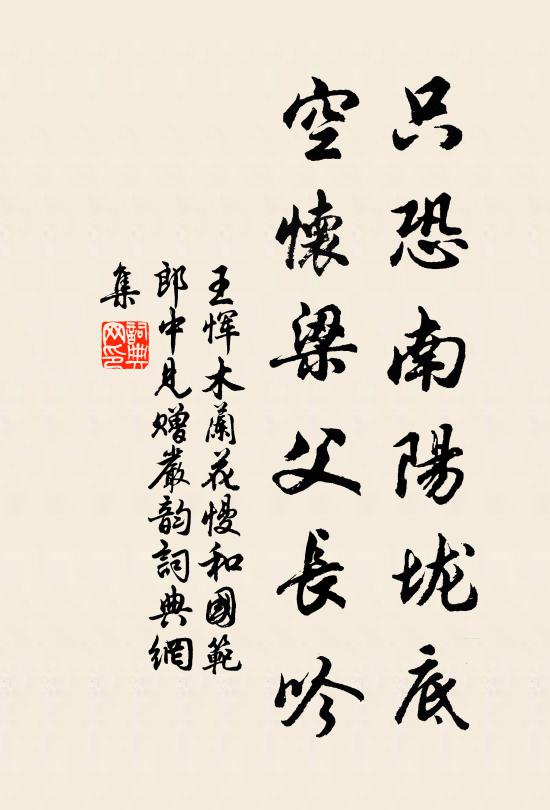 只恐南陽垅底
空懷梁父長吟
王恽木蘭花慢和國範
郎中見贈嚴韵詞典網
集
詞典网印